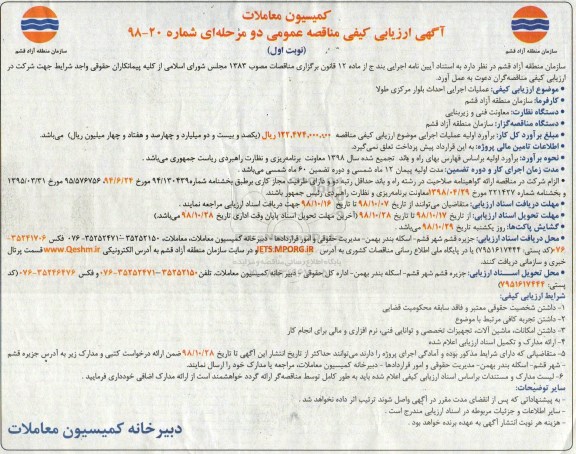 کمیسیون معاملات
آگهی ارزیابی کیفی مناقصه عمومی دو مرحله‌ای شماره ۲۰-۹۸
(نوبت اول)
سازمان منطقه آزاد قشم
سازمان منطقه آزاد قشم
سازمان منطقه آزاد قشم در نظر دارد به استناد آیین نامه اجرایی بند ج از ماده ۱۲ قانون برگزاری مناقصات مصوب ۱۳۸۳ مجلس شورای اسلامی از کلیه پیمانکاران حقوقی واجد شرایط جهت شرکت در
ارزیابی کیفی مناقصه‌گران دعوت به عمل آورد.
• موضوع ارزیابی کیفی: عملیات اجرایی احداث بلوار مرکزی طولا
• کارفرما: سازمان منطقه آزاد قشم
• دستگاه نظارت: معاونت فنی و زیربنایی
• دستگاه مناقصه‌گزار: سازمان منطقه آزاد قشم
• مبلغ برآورد کل کار: برآورد اولیه عملیات اجرایی موضوع ارزیابی کیفی مناقصه ۱۲۲,۴۷۴,۰۰۰,۰۰۰ ریال (یکصد و بیست و دو میلیارد و چهارصد و هفتاد و چهار میلیون ریال) می‌باشد.
• اطلاعات تامین مالی پروژه: به این قرارداد پیش پرداخت تعلق نمی‌گیرد.
• نحوه برآورد: برآورد اولیه براساس فهارس بهای راه و باند تجمیع شده سال ۱۳۹۸ معاونت برنامه‌ریزی و نظارت راهبردی ریاست جمهوری می‌باشد.
• مدت زمان اجرای کار و دوره تضمین: مدت اولیه پیمان ۱۲ ماه شمسی و دوره تضمین ۶۰ ماه شمسی می‌باشد.
• الزام شرکت در مناقصه ارائه گواهینامه صلاحیت در رشته راه و باند حداقل رتبه دو و دارای ظرفیت مجاز کاری برطبق بخشنامه شماره ۹۴/۱۳۰۴۳۹ مورخ ۹۴/۶/۲۴ و ۹۵/۵۷۶۷۵۶ مورخ ۱۳۹۵/۰۳/۳۱
و بخشنامه شماره ۲۲۱۴۲۷ مورخ ۱۳۹۸/۰۴/۲۹ معاونت برنامه‌ریزی و نظارت راهبردی رئیس جمهور باشند.
• مهلت دریافت اسناد ارزیابی: متقاضیان می‌توانند از تاریخ ۹۸/۱۰/۰۷ تا تاریخ ۹۸/۱۰/۱۶ جهت دریافت اسناد ارزیابی مراجعه نمایند.
• مهلت تحویل اسناد ارزیابی: از تاریخ ۹۸/۱۰/۱۷ تا تاریخ ۹۸/۱۰/۲۸ (آخرین مهلت تحویل اسناد پایان وقت اداری تاریخ ۹۸/۱۰/۲۸ می‌باشد.)
• گشایش پاکت‌ها: روز یکشنبه تاریخ ۹۸/۱۰/۲۹ می‌باشد
• محل دریافت اسناد ارزیابی: جزیره قشم شهر قشم- اسکله بندر بهمن- مدیریت حقوقی و امور قراردادها - دبیرخانه کمیسیون معاملات، تلفن ۳۵۲۵۲۱۵۰-۳۵۲۵۲۴۷۱-۰۷۶ فکس ۳۵۲۴۱۷۰۶-
۰۷۶ (کد پستی: ۷۹۵۱۶۱۷۴۴۴) یا در پایگاه ملی اطلاع رسانی مناقصات کشوری به آدرس IETS.MPORG.IR و در سایت سازمان منطقه آزاد قشم به آدرس الکترونیکی www.Qeshm.ir قسمت پرتال
خبری و سازمانی دریافت کنند.
• محل تحویل اسناد ارزیابی: جزیره قشم شهر قشم- اسکله بندر بهمن- اداره کل حقوقی - دبیر خانه کمیسیون معاملات، تلفن ۳۵۲۵۲۱۵۰-۳۵۲۵۲۴۷۱-۰۷۶ و فکس ۳۵۲۴۶۴۷۶-۰۷۶ (کد
پستی: ۷۹۵۱۶۱۷۴۴۴)
شرایط ارزیابی کیفی:
۱- داشتن شخصیت حقوقی معتبر و فاقد سابقه محکومیت قضایی
۲- داشتن تجربه کافی مرتبط با موضوع
۳- داشتن امکانات، ماشین آلات، تجهیزات تخصصی و توانایی فنی، نرم افزاری و مالی برای انجام کار
۴- ارائه مدارک و تکمیل اسناد ارزیابی اعلام شده
۵- متقاضیانی که دارای شرایط مذکور بوده و آمادگی اجرای پروژه را دارند می‌توانند حداکثر از تاریخ انتشار این آگهی تا تاریخ ۹۸/۱۰/۲۸ ضمن ارائه درخواست کتبی و مدارک زیر به آدرس جزیره قشم
- شهر قشم- اسکله بندر بهمن- مدیریت حقوقی و امور قراردادها - دبیرخانه کمیسیون معاملات، مراجعه یا مدارک خود را ارسال نمایند.
۶- لیست مدارک و مستندات براساس اسناد ارزیابی کیفی اعلام شده باید به طور کامل توسط مناقصه‌گر ارائه گردد خواهشمند است از ارائه مدارک اضافی خودداری فرمایید.
سایر توضیحات:
- به پیشنهاداتی که پس از انقضای مدت مقرر در آگهی واصل شوند ترتیب اثر داده نخواهد شد.
- سایر اطلاعات و جزئیات مربوطه در اسناد ارزیابی مندرج است.
- هزینه هر نوبت انتشار آگهی به عهده برنده خواهد بود.
دبیرخانه کمیسیون معاملات